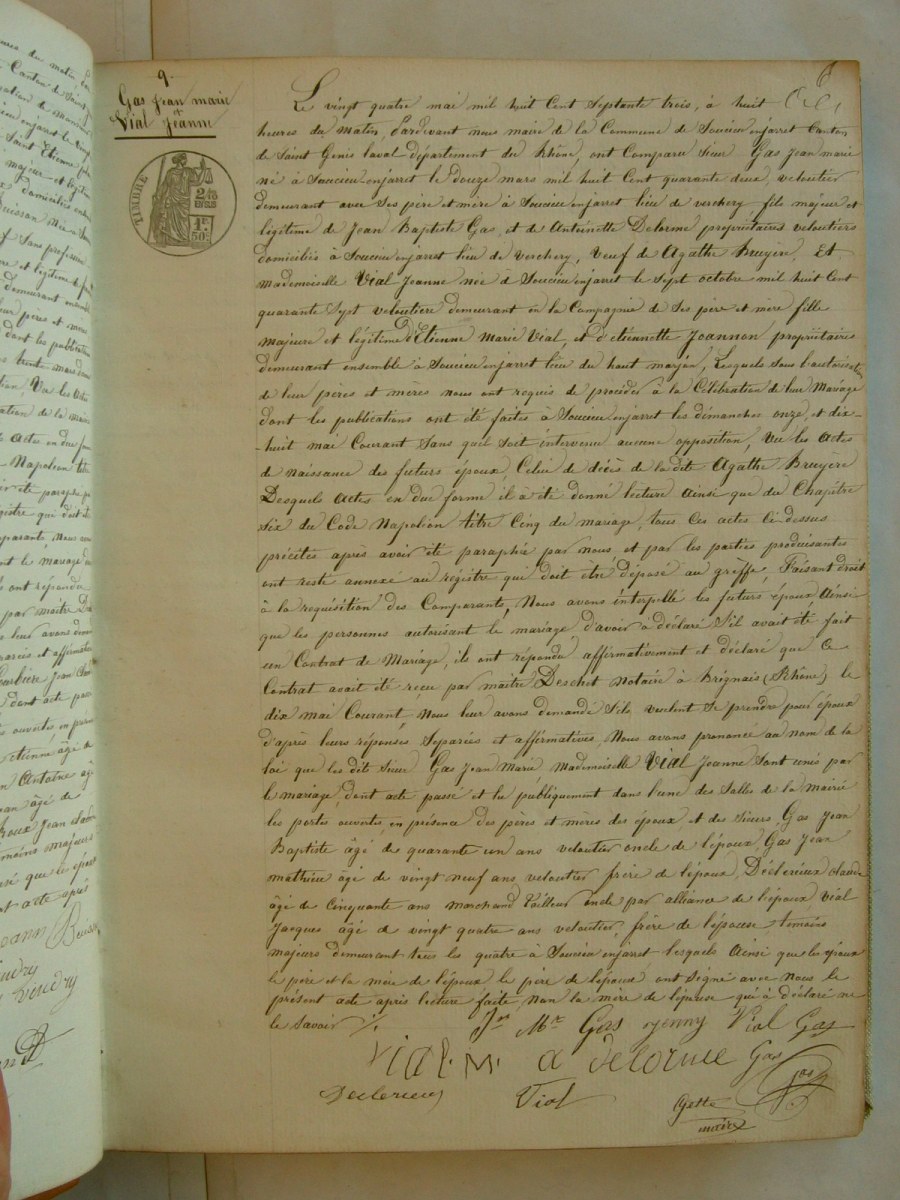 9.
Gas Jean marie
et
Vial Jeanne
TIMBRE
Le vingt quatre mai mil huit Cent Septante trois, à huit
heures du Matin, Pardevant nous maire de la Commune de Soucieu enjarret Canton
de Saint Genis laval département du Rhône, ont Comparu Sieur Gas Jean marie
né à Soucieu enjarret le douze mars mil huit Cent quarante deux, veloutier
demeurant avec Ses père et mère à Soucieu enjarret lieu de verchery fils majeur et
légitime de Jean Baptiste Gas, et de Antoinette Delorme propriétaires veloutiers
domiciliés à Soucieu enjarret lieu de Verchery, Veuf de Agathe Bruyère, Et
Mademoiselle Vial Jeanne née à Soucieu enjarret le Sept octobre mil huit Cent
quarante Sept veloutière demeurant en la Compagnie de Ses père et mère fille
majeure et légitime d'Etienne Marie Vial, et d'etiennette Joannon propriétaires
demeurant ensemble à Soucieu enjarret lieu du haut marjon, Lesquels Sous l'autorisation
de leur pères et mères nous ont requis de procéder à la Célébration de leur Mariage
dont les publications ont été faites à Soucieu enjarret les démanches onze, et dix-
-huit mai Courant Sans quil Soit intervenu aucune opposition, Vu les Actes
de naissance des futurs époux Celui de décès de la dite Agathe Bruyère
Desquels Actes en due forme il à été donné lecture Ainsi que du Chapitre
Six du Code Napoléon titre Cinq du mariage, tous Ces actes Cidessus
précités après avoir été paraphé par nous et par les parties produisantes
ont resté annexé au régistre qui doit être déposé au greffe, Faisant droit
à la requisition des Comparants, Nous avons interpellé les futurs époux Ainsi
que les personnes autorisant le mariage d'avoir à déclaré S'il avait été fait
un Contrat de Mariage, ils ont répondu affirmativement et déclaré que Ce
Contrat avait été recu par maître Deschet Notaire à Brignais (Rhône) le
dix mai Courant, Nous leur avons demandé Sils veulent Se prendre pour époux
d'après leurs réponses Séparées et affirmatives, Nous avons prononcé au nom de la
loi que les dit Sieur Gas Jean Marie Mademoiselle Vial Jeanne Sont unis par
le mariage, dont acte passé et lu publiquement dans l'une des Salles de la mairie
les portes ouvertes, en présence des pères et mères des époux, et des Sieurs Gas Jean
Baptiste âgé de quarante un ans veloutier oncle de l'époux Gas Jean
mathieu âgé de vingt neuf ans veloutier frère de l'époux, Déclérieux claude
âgé de Cinquante ans marchand tailleur oncle par alliance de l'époux Vial
Jacques âgé de vingt quatre ans veloutier, frère de l'épouse témoins
majeurs demeurant tous les quatre à Soucieu enjarret lesquels Ainsi que les époux
le père et la mère de l'époux le père de l'épouse ont Signé avec Nous le
présent acte après lecture faite, Non la mère de l'épouse qui à déclaré ne
le Savoir
Jn Mie Gas jenny Vial Gas
Vial E. M. a delorme Gas
Declerieux Vial Gas
maire